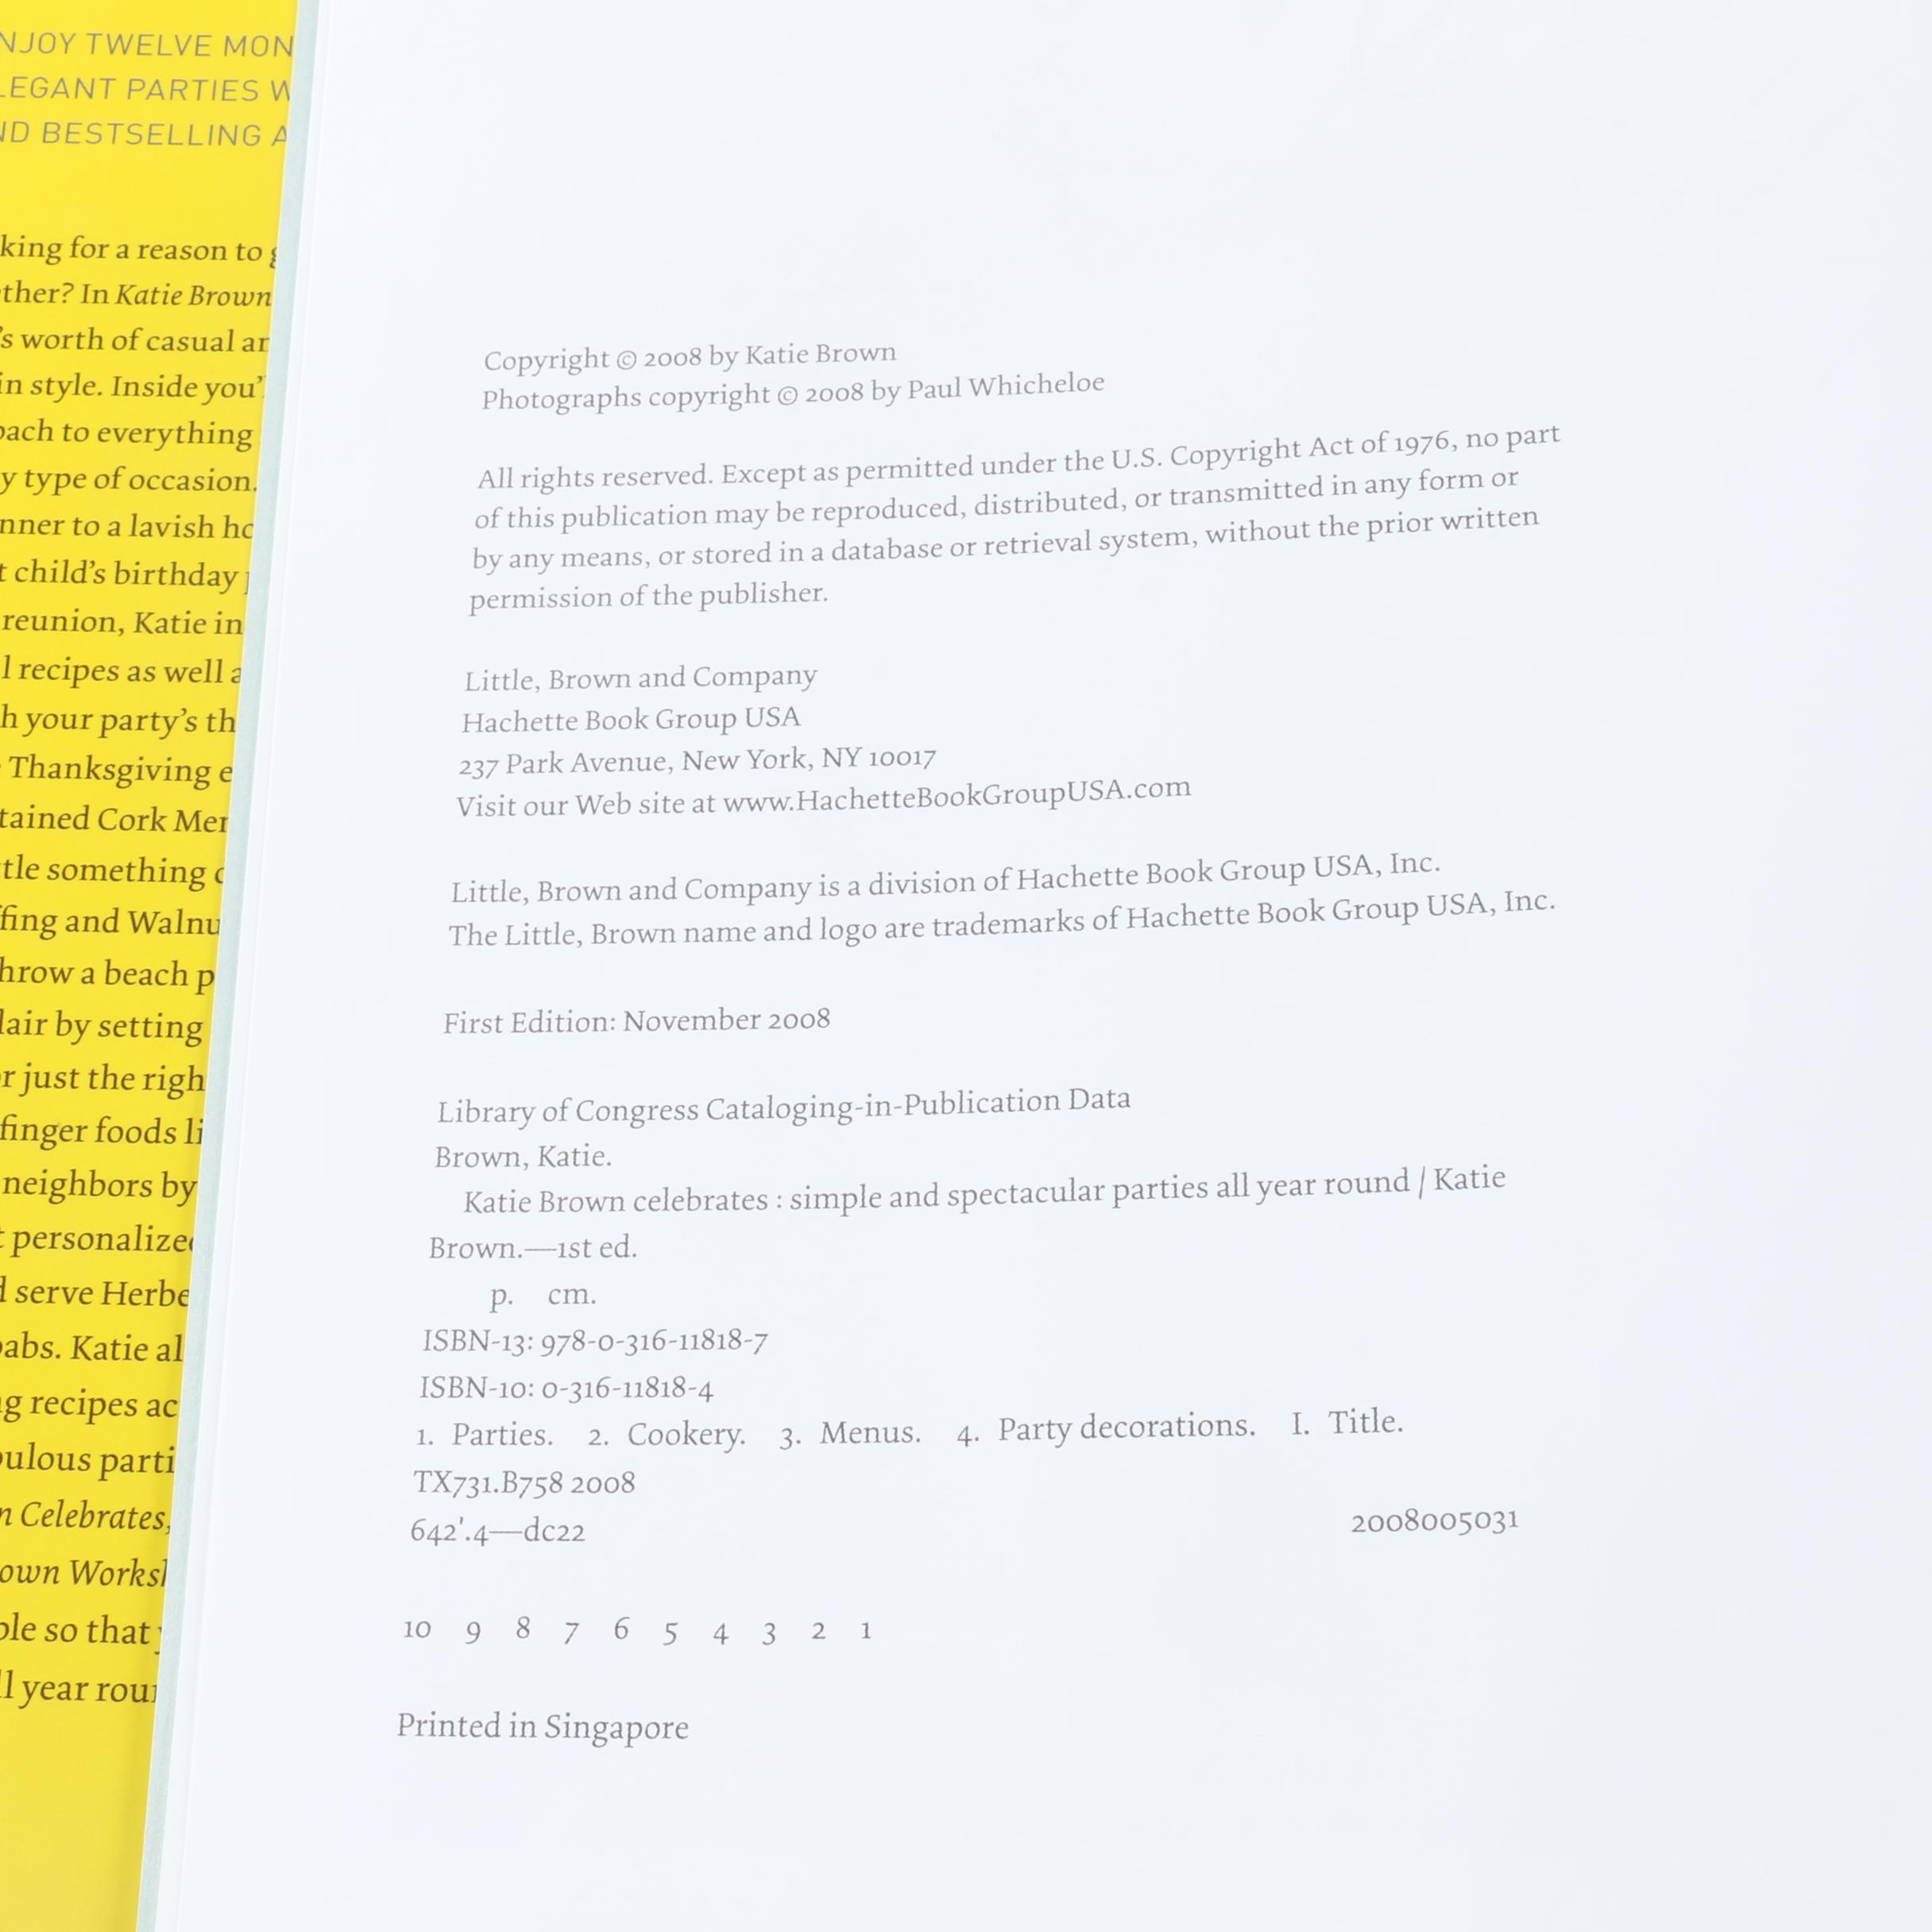 NJOY TWELVE MON
LEGANT PARTIES W
ND BESTSELLING A
king for a reason to g
ther? In Katie Brown
's worth of casual an
in style. Inside you'
oach to everything
y type of occasion.
nner to a lavish ho
t child's birthday p
reunion, Katie in
l recipes as well a
h your party's th
Thanksgiving e
tained Cork Mer
tle something c
ffing and Walnu
hrow a beach p
lair by setting
r just the righ
finger foods li
neighbors by
t personalized
d serve Herbe
babs. Katie al
ng recipes ac
bulous parti
n Celebrates,
own Worksh
ple so that y
ll year roun
Copyright © 2008 by Katie Brown
Photographs copyright © 2008 by Paul Whicheloe
All rights reserved. Except as permitted under the U.S. Copyright Act of 1976, no part
of this publication may be reproduced, distributed, or transmitted in any form or
by any means, or stored in a database or retrieval system, without the prior written
permission of the publisher.
Little, Brown and Company
Hachette Book Group USA
237 Park Avenue, New York, NY 10017
Visit our Web site at www.HachetteBookGroupUSA.com
Little, Brown and Company is a division of Hachette Book Group USA, Inc.
The Little, Brown name and logo are trademarks of Hachette Book Group USA, Inc.
First Edition: November 2008
Library of Congress Cataloging-in-Publication Data
Brown, Katie.
Katie Brown celebrates : simple and spectacular parties all year round / Katie
Brown.—1st ed.
p. cm.
ISBN-13: 978-0-316-11818-7
ISBN-10: 0-316-11818-4
1. Parties. 2. Cookery. 3. Menus. 4. Party decorations. I. Title.
TX731.B758 2008
642'.4—dc22 2008005031
10 9 8 7 6 5 4 3 2 1
Printed in Singapore